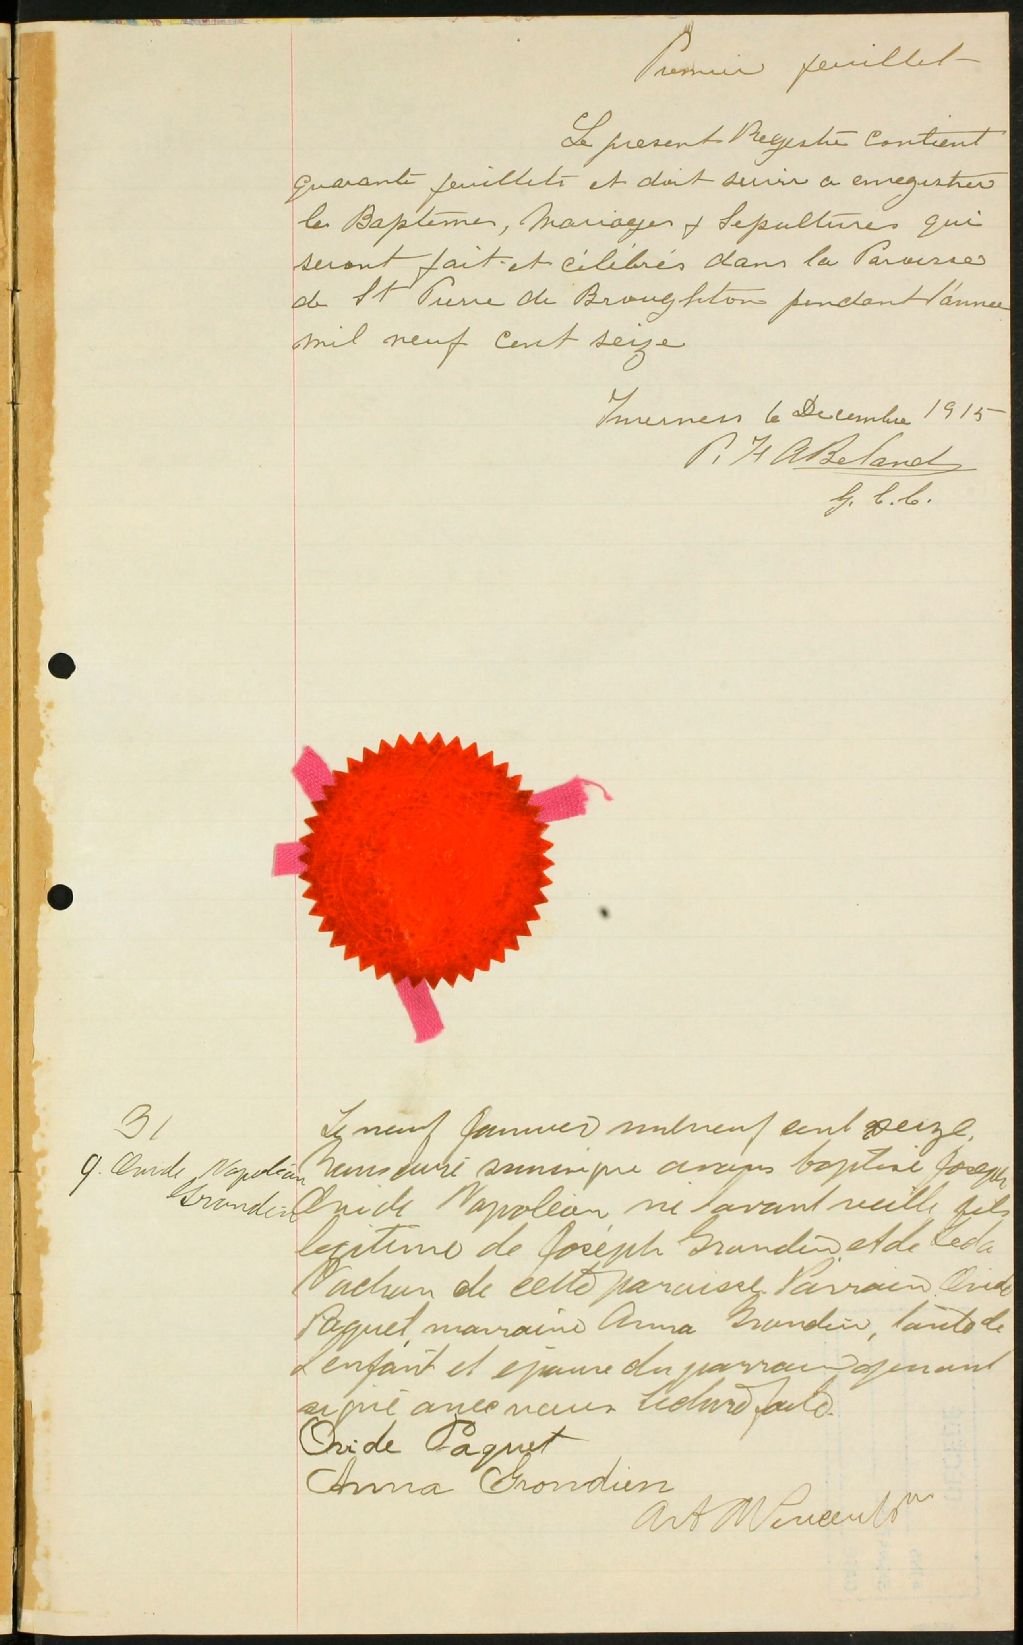 Premier feuillet
Le present Registre contient
quarante feuillets et doit servir a enregistrer
les Baptemes, Mariages & Sepultures qui
seront fait et célébrés dans la Paroisse
de St Pierre de Broughton pendant l'année
mil neuf cent seize
Inverness 6 Decembre 1915
P. H A Beland
G. C. C.
B1
9. Ovide Napoléon
Grondin
Le neuf Janvier mil neuf cent seize,
Nous curé soussigné avons baptisé Joseph
Ovide Napoléon né l'avant veille fils
légitime de Joseph Grondin et de Leda
Vachon de cette paroisse. Parrain Ovide
Paquet, marraine Anna Grondin, tante de
L'enfant et épouse du parrain qui ont
signé avec nous. Lecture faite.
Ovide Paquet
Anna Grondien